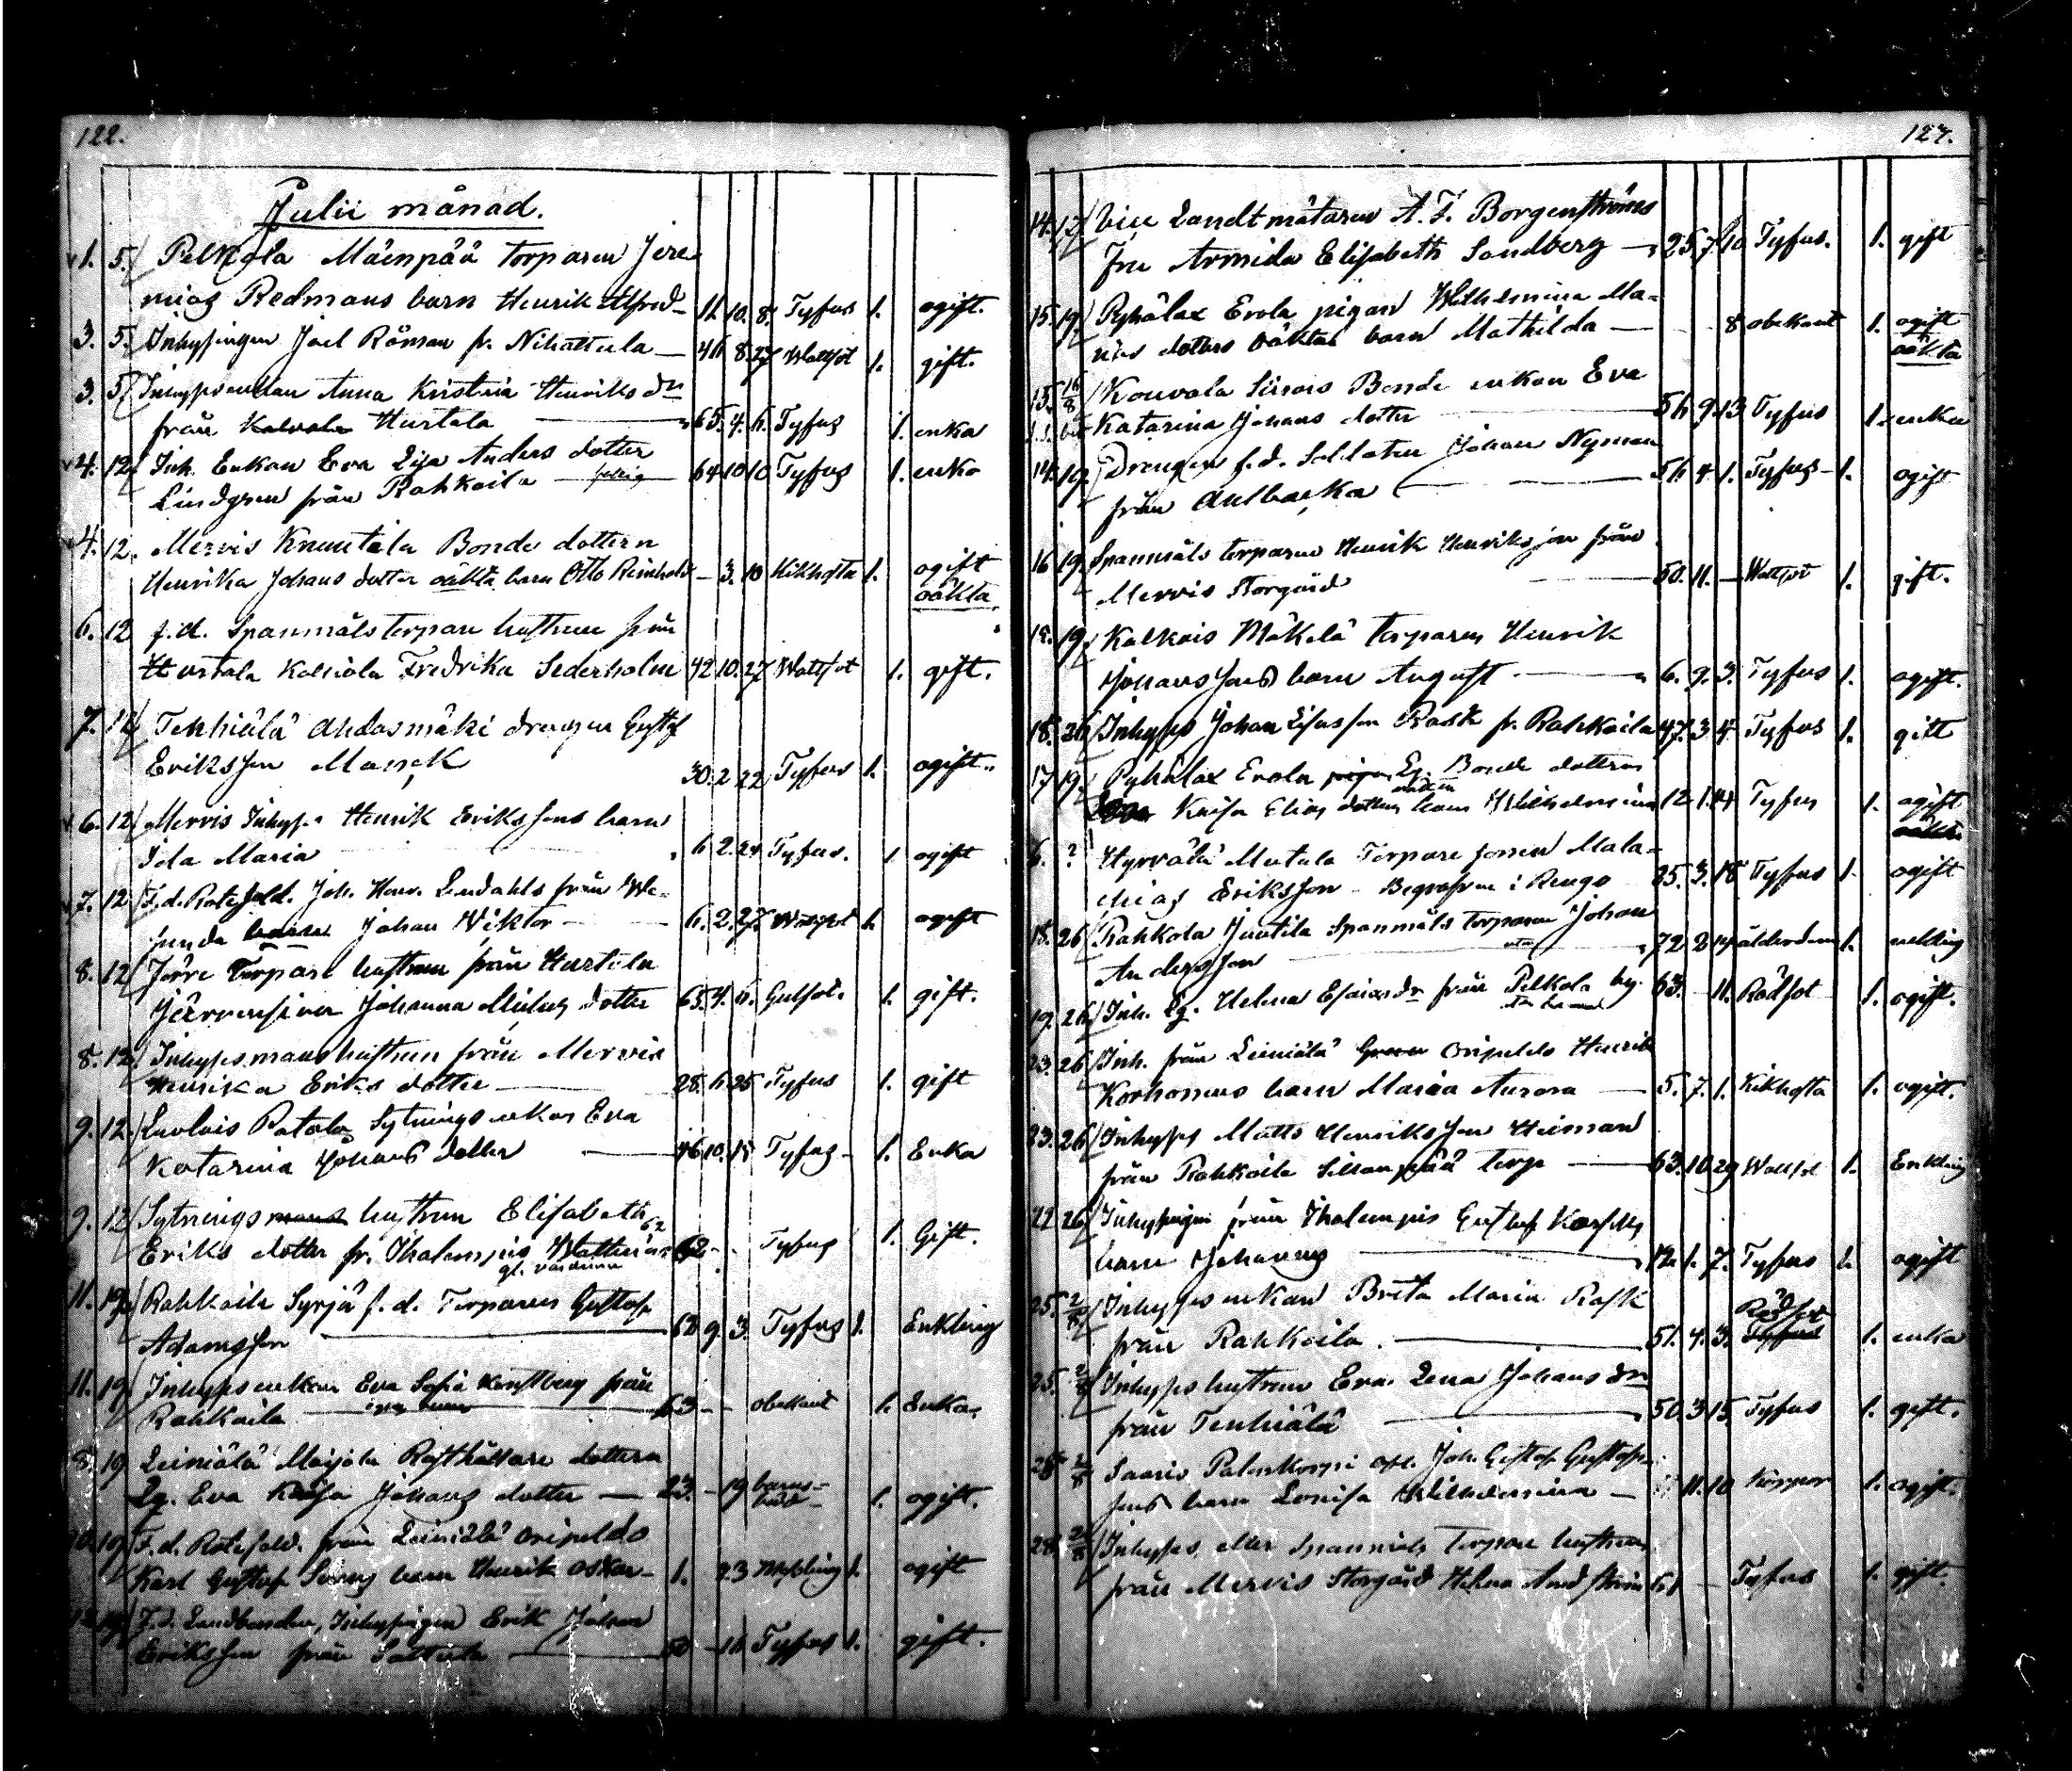 122.
Julii månad.
1. 5. Pelkola Mäenpää torparen Jere
mias Redmans barn Henrik Alfred 11. 10. 8. Tyfus 1. ogift.
3. 5. Inhysingen Joel Röman fr. Nihattula 46 8. 27 Wattsot 1. gift.
3. 5. Inhysenkan Anna Kristina Henriks dr
från Hurtala 65. 4. 6. Tyfus 1. enka
4. 12. Inh. Enkan Eva Lisa Anders dotter
Lindgren från Rahkoila 64 10 10 Tyfus 1. enka
4. 12. Mervis Knuutila Bonde dottern
Henrika Johans dotter oäkta barn Otto Reinhold - 3. 10 Kikhosta 1. ogift
oäkta
6. 12 f.d. Spanmåls torpare hustrun från
Hurtala Kalliola Fredrika Sederholm 42 10. 27 Wattsot 1. gift.
7. 12 Tenhiälä Ahdasmäki drengen Gustaf
Eriksson Manck 30. 2 22 Tyfus 1. ogift.
6. 12 Mervis Inhys. Henrik Erikssons barn
Ida Maria 6 2. 24 Tyfus. 1 ogift
7. 12 F.d. Rotesold. Joh. Henr. Lindahls från We-
sunda barn Johan Wiktor 6. 2. 27. 1. ogift
8. 12 Torpare hustrun från Hurtala
Järvensivu Johanna Mickels dotter 65. 4. 11. Gulsot. 1. gift.
8. 12. Inhysesmans hustrun från Mervis
Henrika Eriks dotter 28. 6. 25 Tyfus 1. gift
9. 12. Luolais Patala Sytnings enkan Eva
Katarina Johans dotter 76 10. 15 Tyfus 1. Enka
9. 12 Sytnings hustrun Elisabeth
Eriks dotter fr. Ihalempis 62 Tyfus 1. Gift.
11. 19. Rahkoila Syrjä f.d. Torparen Gustaf
Adamsson 68 9. 3. Tyfus 1. Enkling
11. 19. Inhysenkan Eva Sofia från
Rahkoila 63 - - obekant 1. Enka.
8. 19 Leiniälä Maijala Rusthållare dottern
Eva Kaisa Johans dotter 23. - 19 barns- 1. ogift.
19. F.d. Rotesold. från Leiniälä
Karl Gustaf barn Henrik Oskar 1. 23 Messling 1. ogift
F.d. Landbonden, Inhysingen Erik Johan
Eriksson från Sattula 50 - 16 Tyfus 1. gift.
127.
14. 12 Vice Landtmätaren A. F. Borgenströms
Fru Armida Elisabeth Sandberg 25. 7. 10 Tyfus. 1. gift
15. 19. Pyhälax Erola pigan Wilhelmina Ma-
dotters oäkta barn Mathilda 8 obekant 1. ogift
oäkta
15. 16/8 Kouvala Siirois Bonde enkan Eva
Katarina Johans dotter 56. 9. 13 Tyfus 1. enka
14. 19. Drengen f.d. Soldaten Johan Nyman
från Aulbacka 56. 4. 1. Tyfus 1. ogift
16 19. Spanmåls torparen Henrik Henriksson från
Mervis Storgård 50. 11. - Wattsot 1. gift.
19. Kalkois Mäkelä torparen Henrik
Johanssons barn August 6. 9. 3. Tyfus 1. ogift.
18. 26 Inhyses Johan Rask fr. Rahkoila 47. 3. 4. Tyfus 1. gift
17 19. Pyhälax Erola Bonde dottern
Kaisa Elias dotters barn Wilhelmina 12. 1. 14 Tyfus 1. ogift
6. ? Hyrvälä Mutala Torpare sonen Mala-
chias Eriksson - Begrafven i Rengo 25. 3. 18 Tyfus 1. ogift
15. 26 Rahkola Juutila Spanmåls torparen Johan
Andersson 72. 2 14 ålderdom 1. enkling
19. 26 Inh. Helena Esaiasdr från Pelkola by. 63. - 11. Rödsot 1. ogift.
23. 26 Inh. från Leiniälä Henrik
Korhonens barn Maria Aurora 5. 7. 1. Kikhosta 1. ogift.
23. 26 Inhyses Matts Henriksson Heiman
från Rahkoila Sillanpää torp 63. 10 29 Wattsot 1. Enkling
22 26 Inhysingen från Ihalempis Gustaf
barn Johannes 12. 1. 7. Tyfus 1. ogift
25. 2/8 Inhyses enkan Brita Maria Rask
från Rahkoila. 51. 4. 3. Rödsot 1. enka
25. 2/8 Inhyses hustrun Eva Lena Johans dr
från Tenhiälä 50. 3 15. Tyfus 1. gift.
28 2/8 Saaris Palinkorpi Joh. Gustaf Gustafs-
sons barn Lovisa Wilhelmina 11. 10 1. ogift.
28. 2/8 Inhyses, eller Spanmåls torpare hustrun
från Mervis Storgård Helena 61 - Tyfus 1. gift.